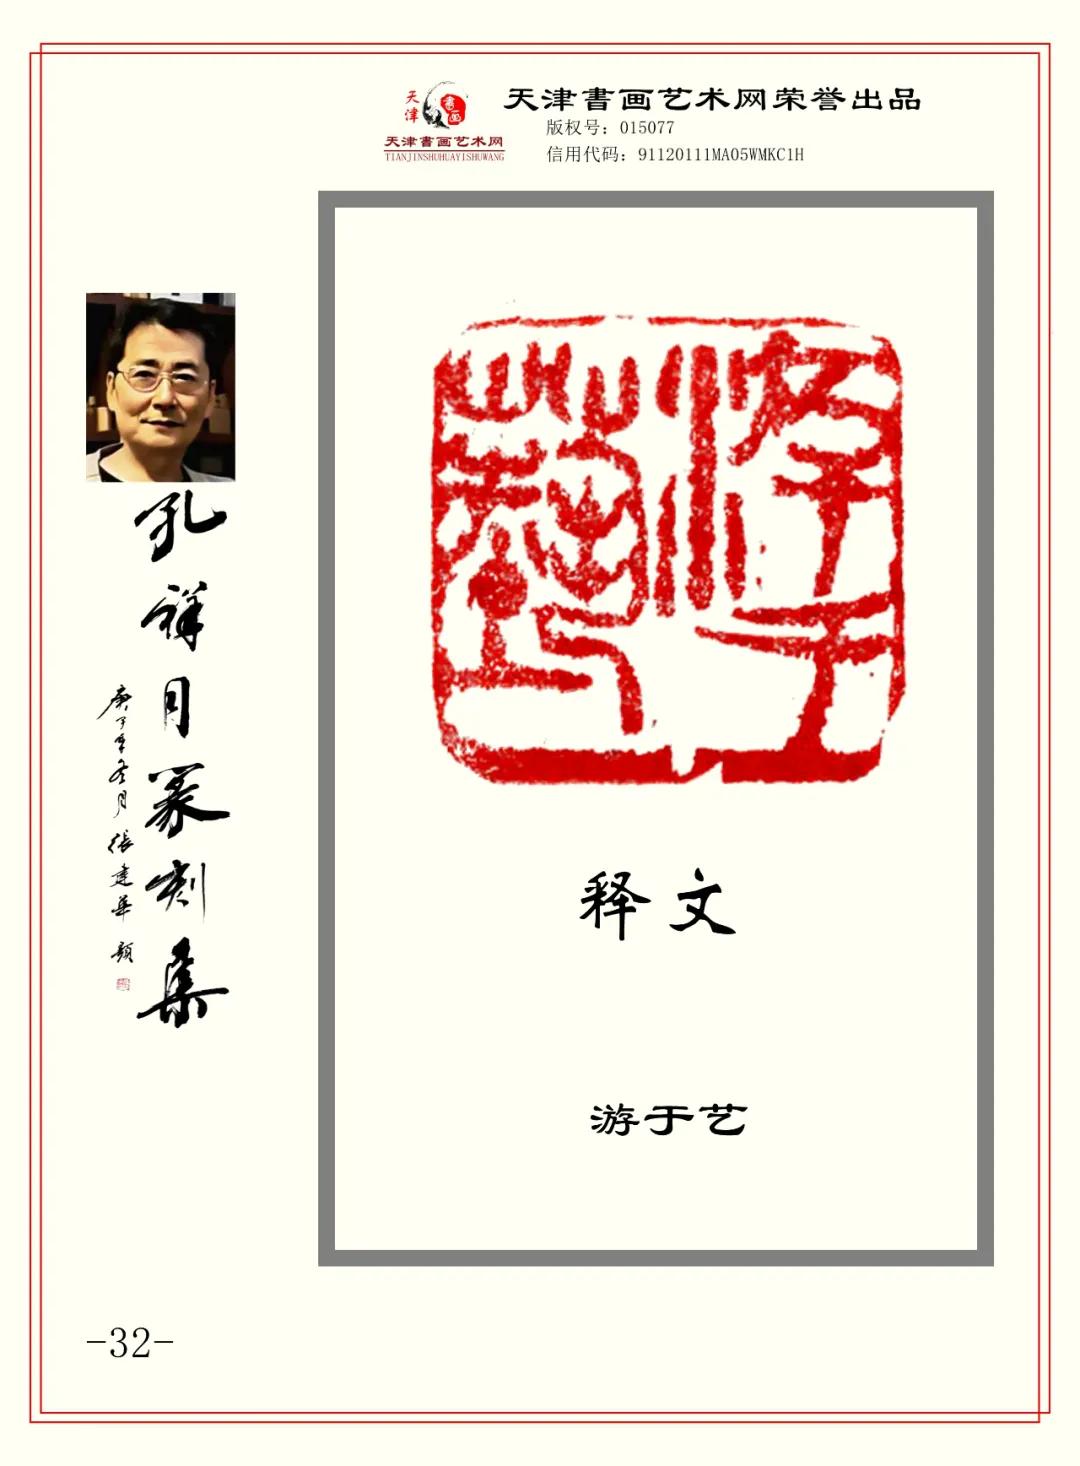 天津
書画
天津書画艺术网
TIANJINSHUHUAYISHUWANG
天津書画艺术网荣誉出品
版权号：015077
信用代码：91120111MA05WMKC1H
孔祥月篆刻集
庚子年冬月 張建華 題
游于藝
释文
游于艺
-32-